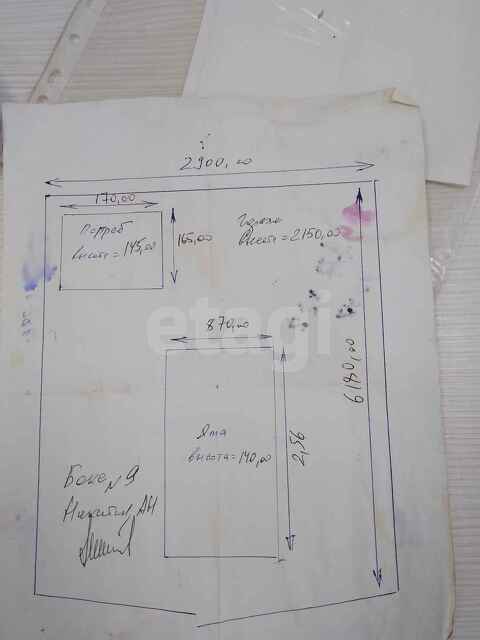 2900,00
170,00
Погреб
высота = 145,00
165,00
Гараж
высота = 2150,00
870,00
etagi
6180,00
Яма
высота = 140,00
2,56
Бокс №9
АН